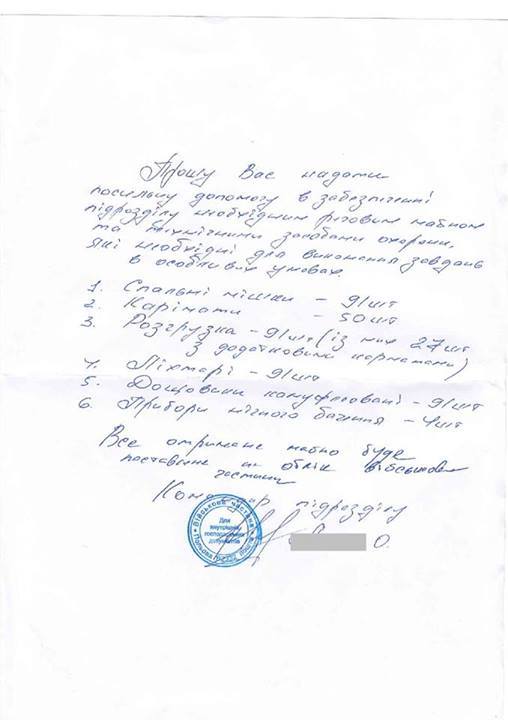 Прошу Вас надати
посильну допомогу в забезпеченні
підрозділу необхідним речовим майном
та технічними засобами охорони,
які необхідні для виконання завдань
в особливих умовах.
1. Спальні мішки – 91шт
2. Карімати – 50шт
3. Розгрузка – 91шт (із них 27шт
з додатковими карманами)
4. Ліхтарі – 91шт
5. Дощовики камуфльовані – 91шт
6. Прибори нічного бачення – 4шт
Все отримане майно буде
поставлене на облік військової
частини
Командир підрозділу
Військова частина
Для
внутрішніх
господарських
документів
О.